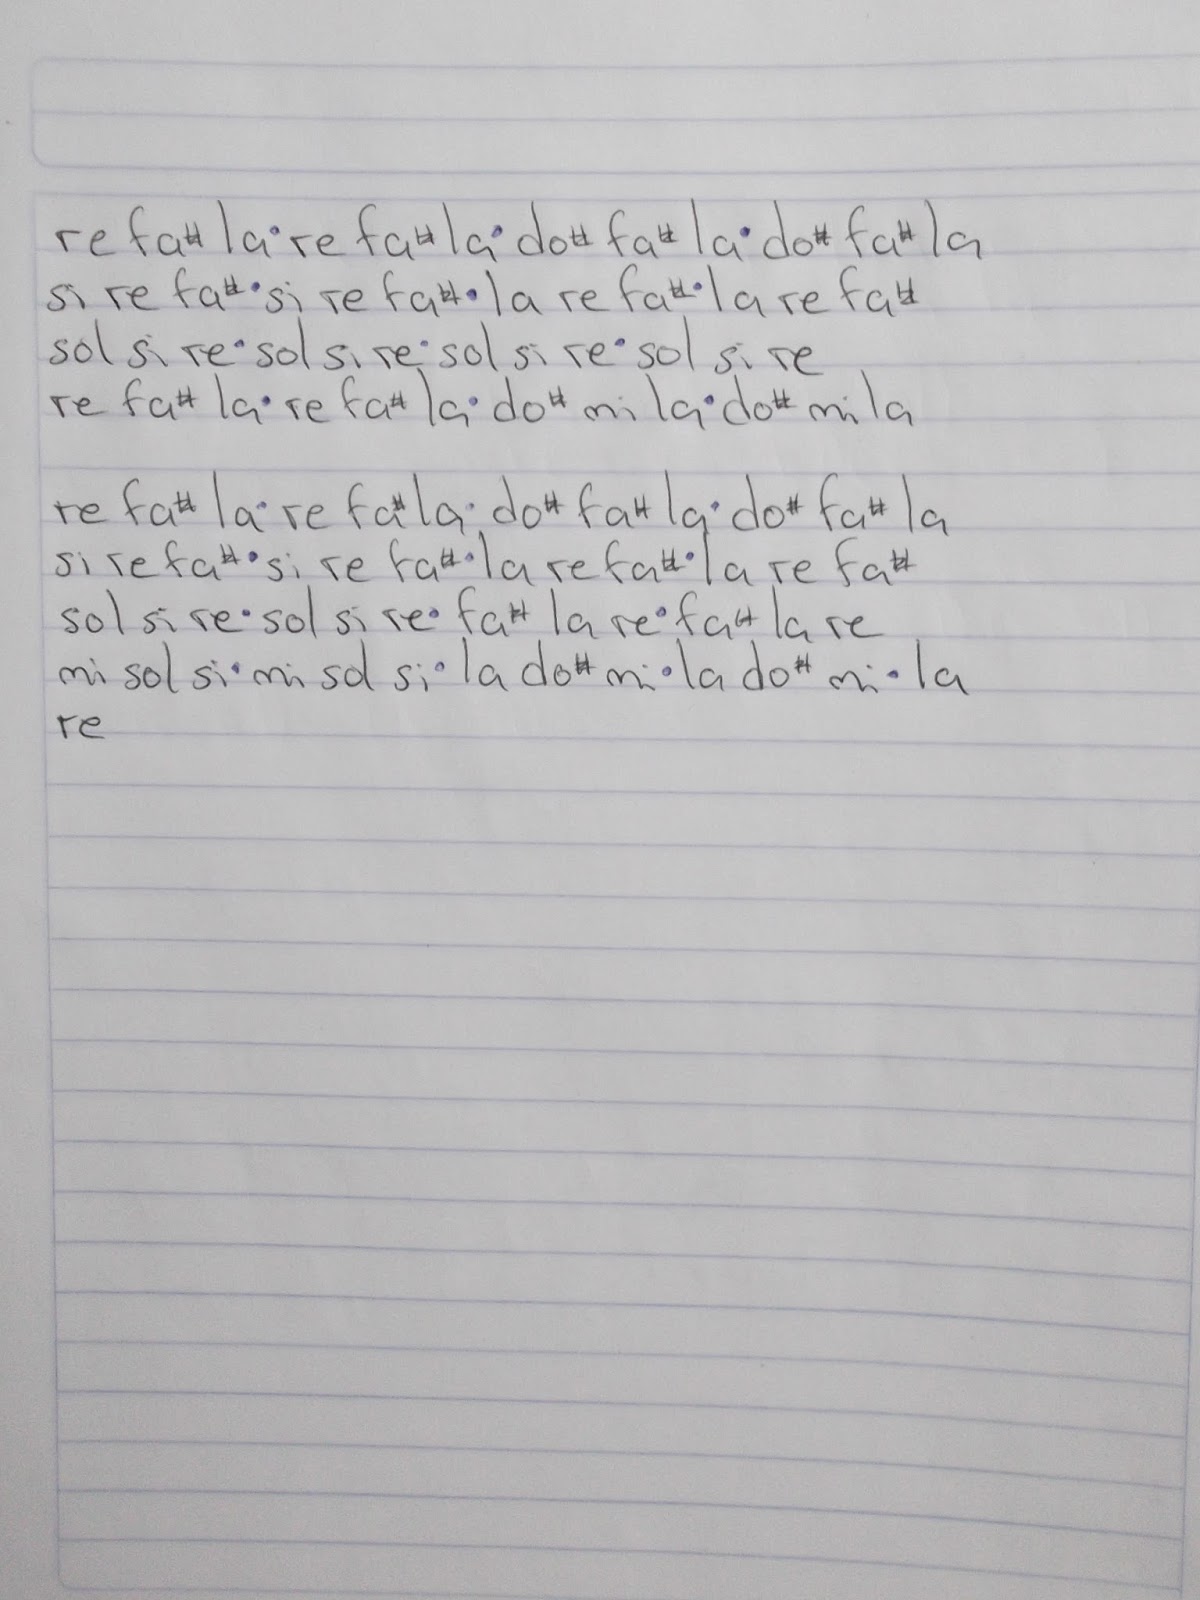 re fa# la·re fa# la·do# fa# la·do# fa# la
si re fa#·si re fa#·la re fa#·la re fa#
sol si re·sol si re·sol si re·sol si re
re fa# la·re fa# la·do# mi la·do# mi la
re fa# la·re fa# la·do# fa# la·do# fa# la
si re fa#·si re fa#·la re fa#·la re fa#
sol si re·sol si re·fa# la re·fa# la re
mi sol si·mi sol si·la do# mi·la do# mi·la
re